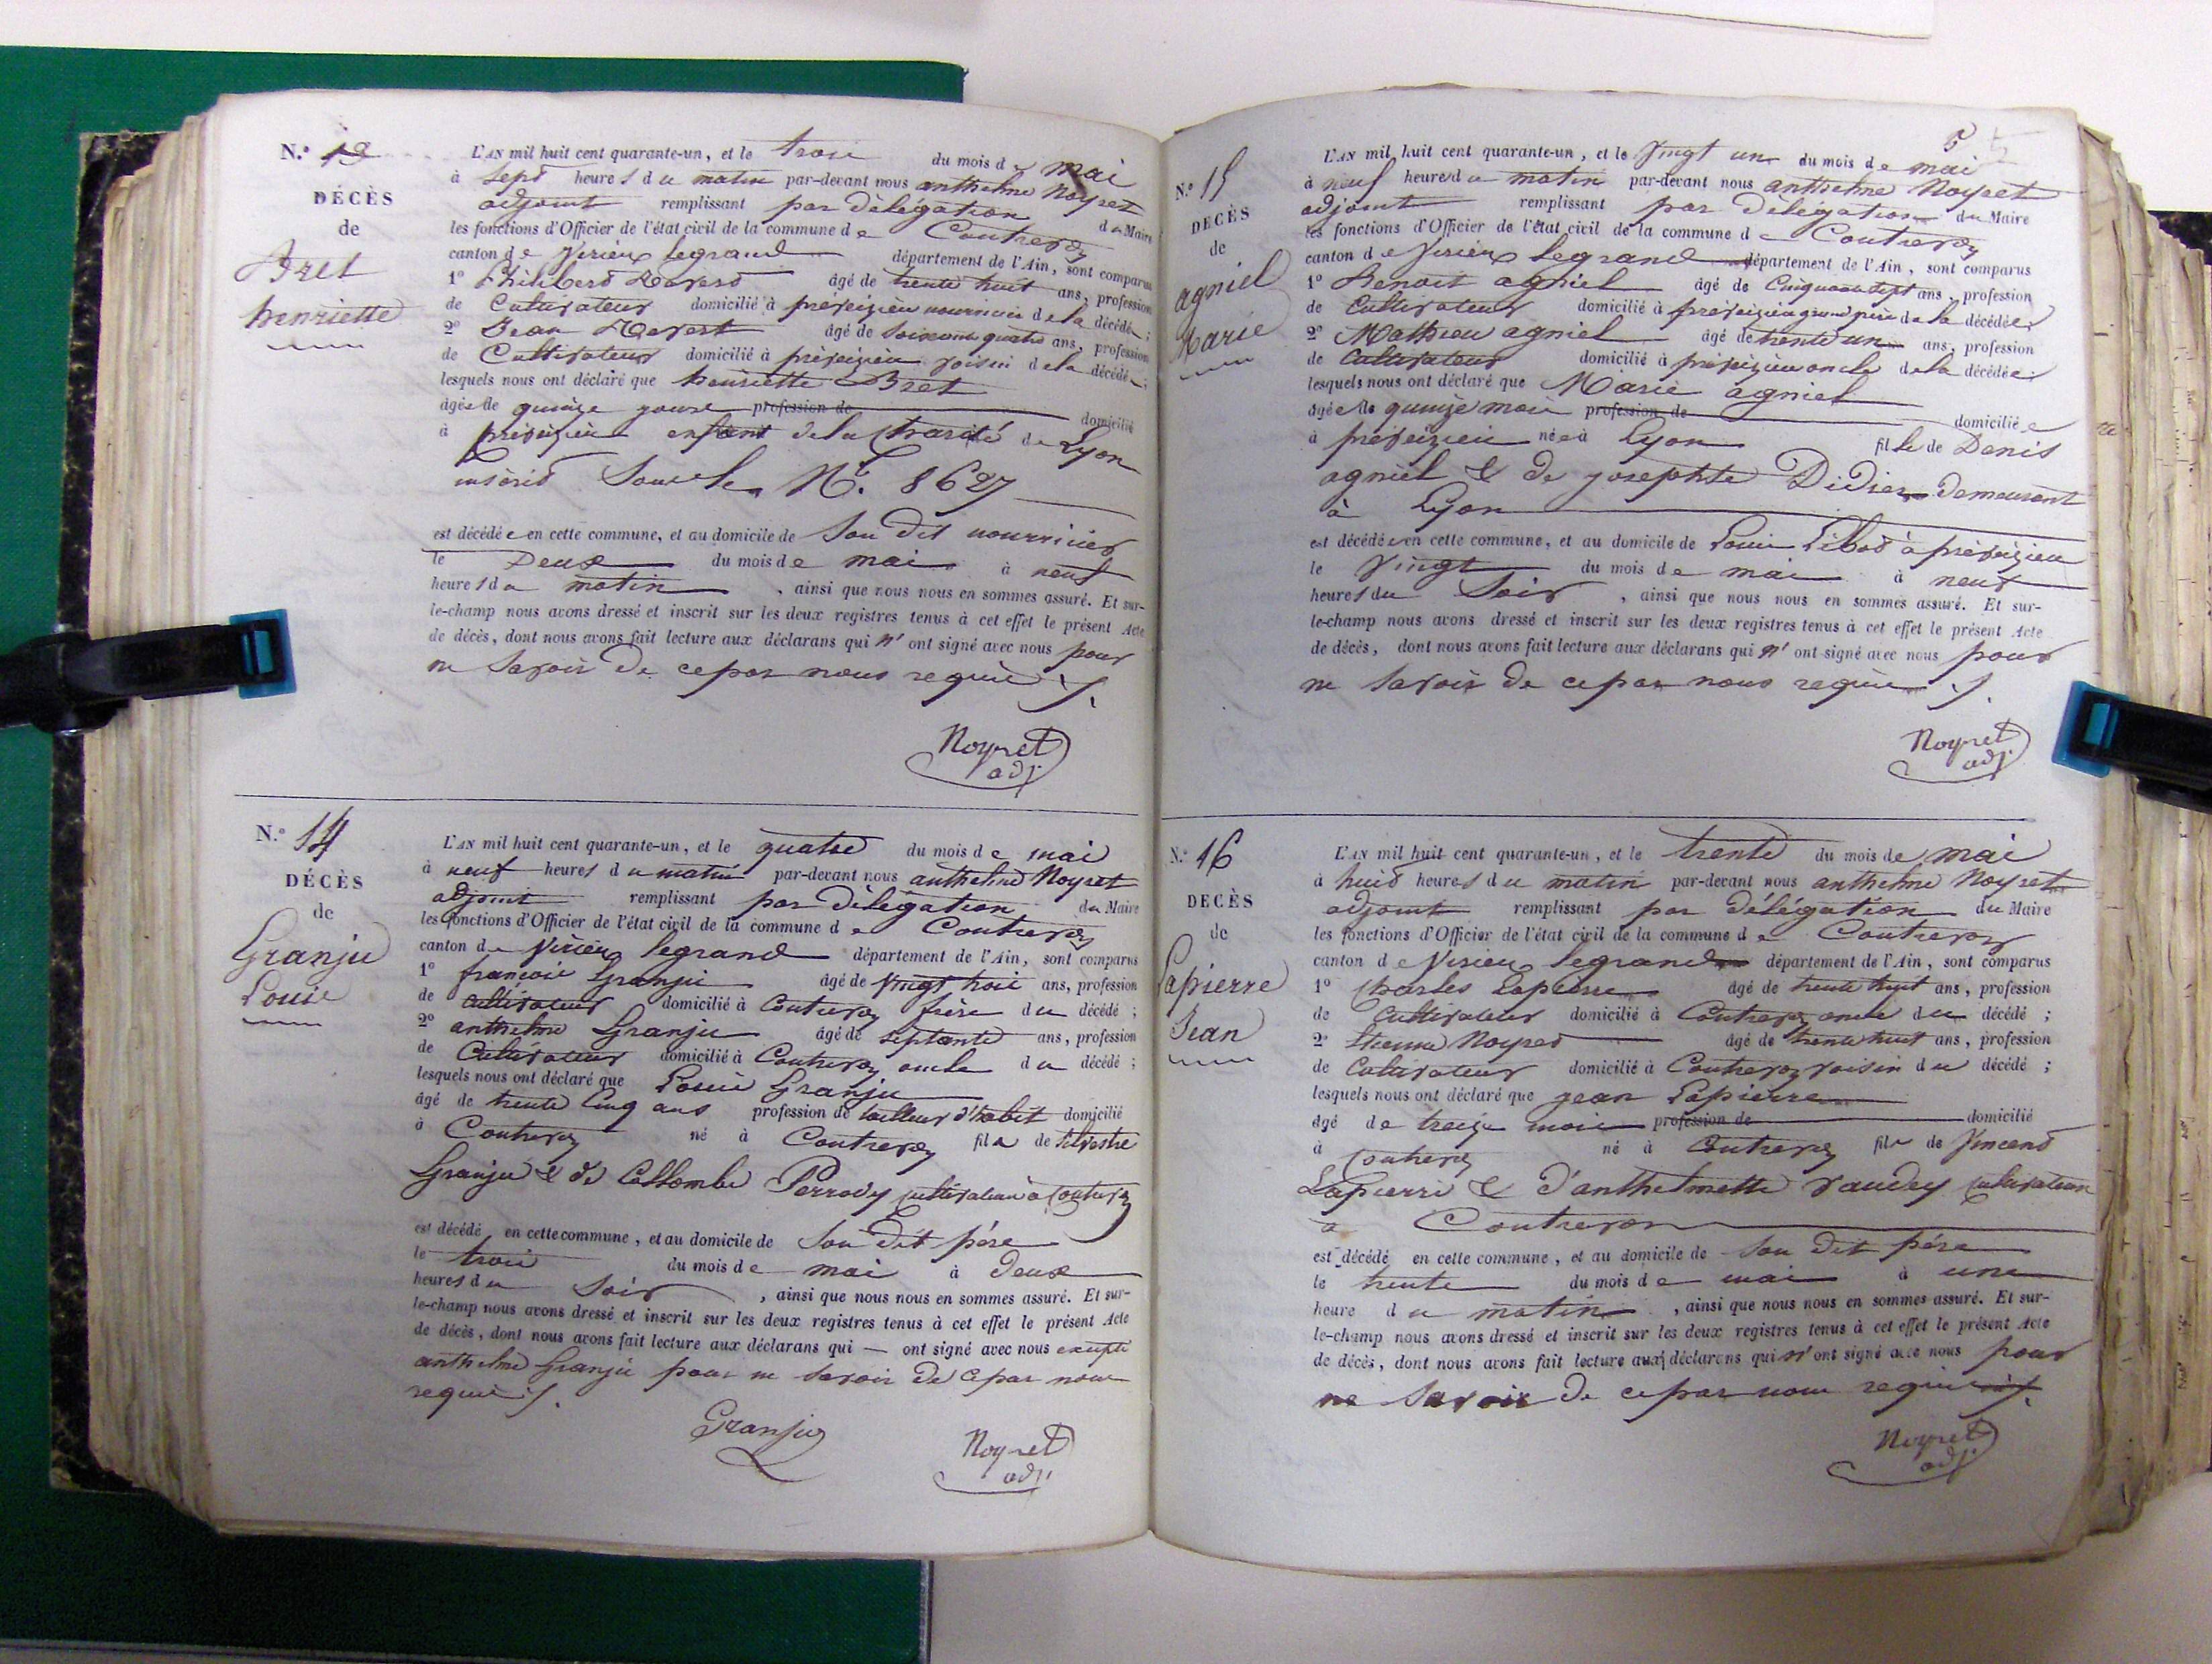 N.º 13
DÉCÈS
de
Bret
henriette
L'AN mil huit cent quarante-un, et le trois du mois de mai
à sept heures du matin par-devant nous anthelme Noyret
adjoint remplissant par délégation du Maire
les fonctions d'Officier de l'état civil de la commune de Contrevoz
canton de Virieu legrand département de l'Ain, sont comparus
1º Philibert Ravest âgé de trente huit ans, profession
de Cultivateur domicilié à préveizieu nourricier de la décédée;
2º Jean Ravest âgé de soixante quatre ans, profession
de Cultivateur domicilié à préveizieu voisin de la décédée;
lesquels nous ont déclaré que henriette Bret
âgée de quinze jours profession de domicilié
à préveizieu enfant de la Charité de Lyon
inscrit sous le N.º 8627
est décédée en cette commune, et au domicile de Son dit nourricier
le Deux du mois de mai à neuf
heures du matin, ainsi que nous nous en sommes assuré. Et sur-
le-champ nous avons dressé et inscrit sur les deux registres tenus à cet effet le présent Acte
de décès, dont nous avons fait lecture aux déclarans qui n'ont signé avec nous pour
ne Savoir De ce par nous requis
Noyret
adj.
N.º 14
DÉCÈS
de
Granju
Louis
L'AN mil huit cent quarante-un, et le quatre du mois de mai
à neuf heures du matin par-devant nous anthelme Noyret
adjoint remplissant par Délégation du Maire
les fonctions d'Officier de l'état civil de la commune de Contrevoz
canton de Virieu legrand département de l'Ain, sont comparus
1º françois Granju âgé de vingt trois ans, profession
de cultivateur domicilié à Contrevoz frère du décédé;
2º anthelme Granju âgé de septante ans, profession
de Cultivateur domicilié à Contrevoz oncle du décédé;
lesquels nous ont déclaré que Louis Granju
âgé de trente Cinq ans profession de tailleur d'habit domicilié
à Contrevoz né à Contrevoz fils de Silvestre
Granju & de Collombe Perrody cultivateur à Contrevoz
est décédé en cette commune, et au domicile de Son Dit père
le trois du mois de mai à Deux
heures du Soir, ainsi que nous nous en sommes assuré. Et sur-
le-champ nous avons dressé et inscrit sur les deux registres tenus à cet effet le présent Acte
de décès, dont nous avons fait lecture aux déclarans qui — ont signé avec nous excepté
anthelme Granju pour ne Savoir De ce par nous
requis
Granju
Noyret
adj.
5
N.º 15
DÉCÈS
de
agniel
Marie
L'AN mil huit cent quarante-un, et le vingt un du mois de mai
à neuf heures du matin par-devant nous anthelme Noyret
adjoint remplissant par Délégation du Maire
les fonctions d'Officier de l'état civil de la commune de Contrevoz
canton de Virieu legrand département de l'Ain, sont comparus
1º Benoit agniel âgé de Cinquante sept ans, profession
de Cultivateur domicilié à préveizieu grand père de la décédée
2º Mathieu agniel âgé de trente un ans, profession
de Cultivateur domicilié à préveizieu oncle de la décédée
lesquels nous ont déclaré que Marie agniel
âgée de quinze mois profession de domiciliée
à préveizieu née à Lyon fille de Denis
agniel & de josephte Didier demeurant
à Lyon
est décédée en cette commune, et au domicile de Louis à préveizieu
le Vingt du mois de mai à neuf
heures du Soir, ainsi que nous nous en sommes assuré. Et sur-
le-champ nous avons dressé et inscrit sur les deux registres tenus à cet effet le présent Acte
de décès, dont nous avons fait lecture aux déclarans qui n'ont signé avec nous pour
ne Savoir De ce par nous requis
Noyret
adj.
N.º 16
DÉCÈS
de
Lapierre
Jean
L'AN mil huit cent quarante-un, et le trente du mois de mai
à huit heures du matin par-devant nous anthelme Noyret
adjoint remplissant par délégation du Maire
les fonctions d'Officier de l'état civil de la commune de Contrevoz
canton de Virieu legrand département de l'Ain, sont comparus
1º Charles Lapierre âgé de trente huit ans, profession
de Cultivateur domicilié à Contrevoz oncle du décédé;
2º Etienne Noyret âgé de trente huit ans, profession
de Cultivateur domicilié à Contrevoz voisin du décédé;
lesquels nous ont déclaré que jean Lapierre
âgé de treize mois profession de domicilié
à Contrevoz né à Contrevoz fils de Vincent
Lapierre & d'anthelmette vaudey cultivateur
à Contrevoz
est décédé en cette commune, et au domicile de Son Dit père
le trente du mois de mai à une
heure du matin, ainsi que nous nous en sommes assuré. Et sur-
le-champ nous avons dressé et inscrit sur les deux registres tenus à cet effet le présent Acte
de décès, dont nous avons fait lecture aux déclarans qui n'ont signé avec nous pour
ne Savoir De ce par nous requis
Noyret
adj.